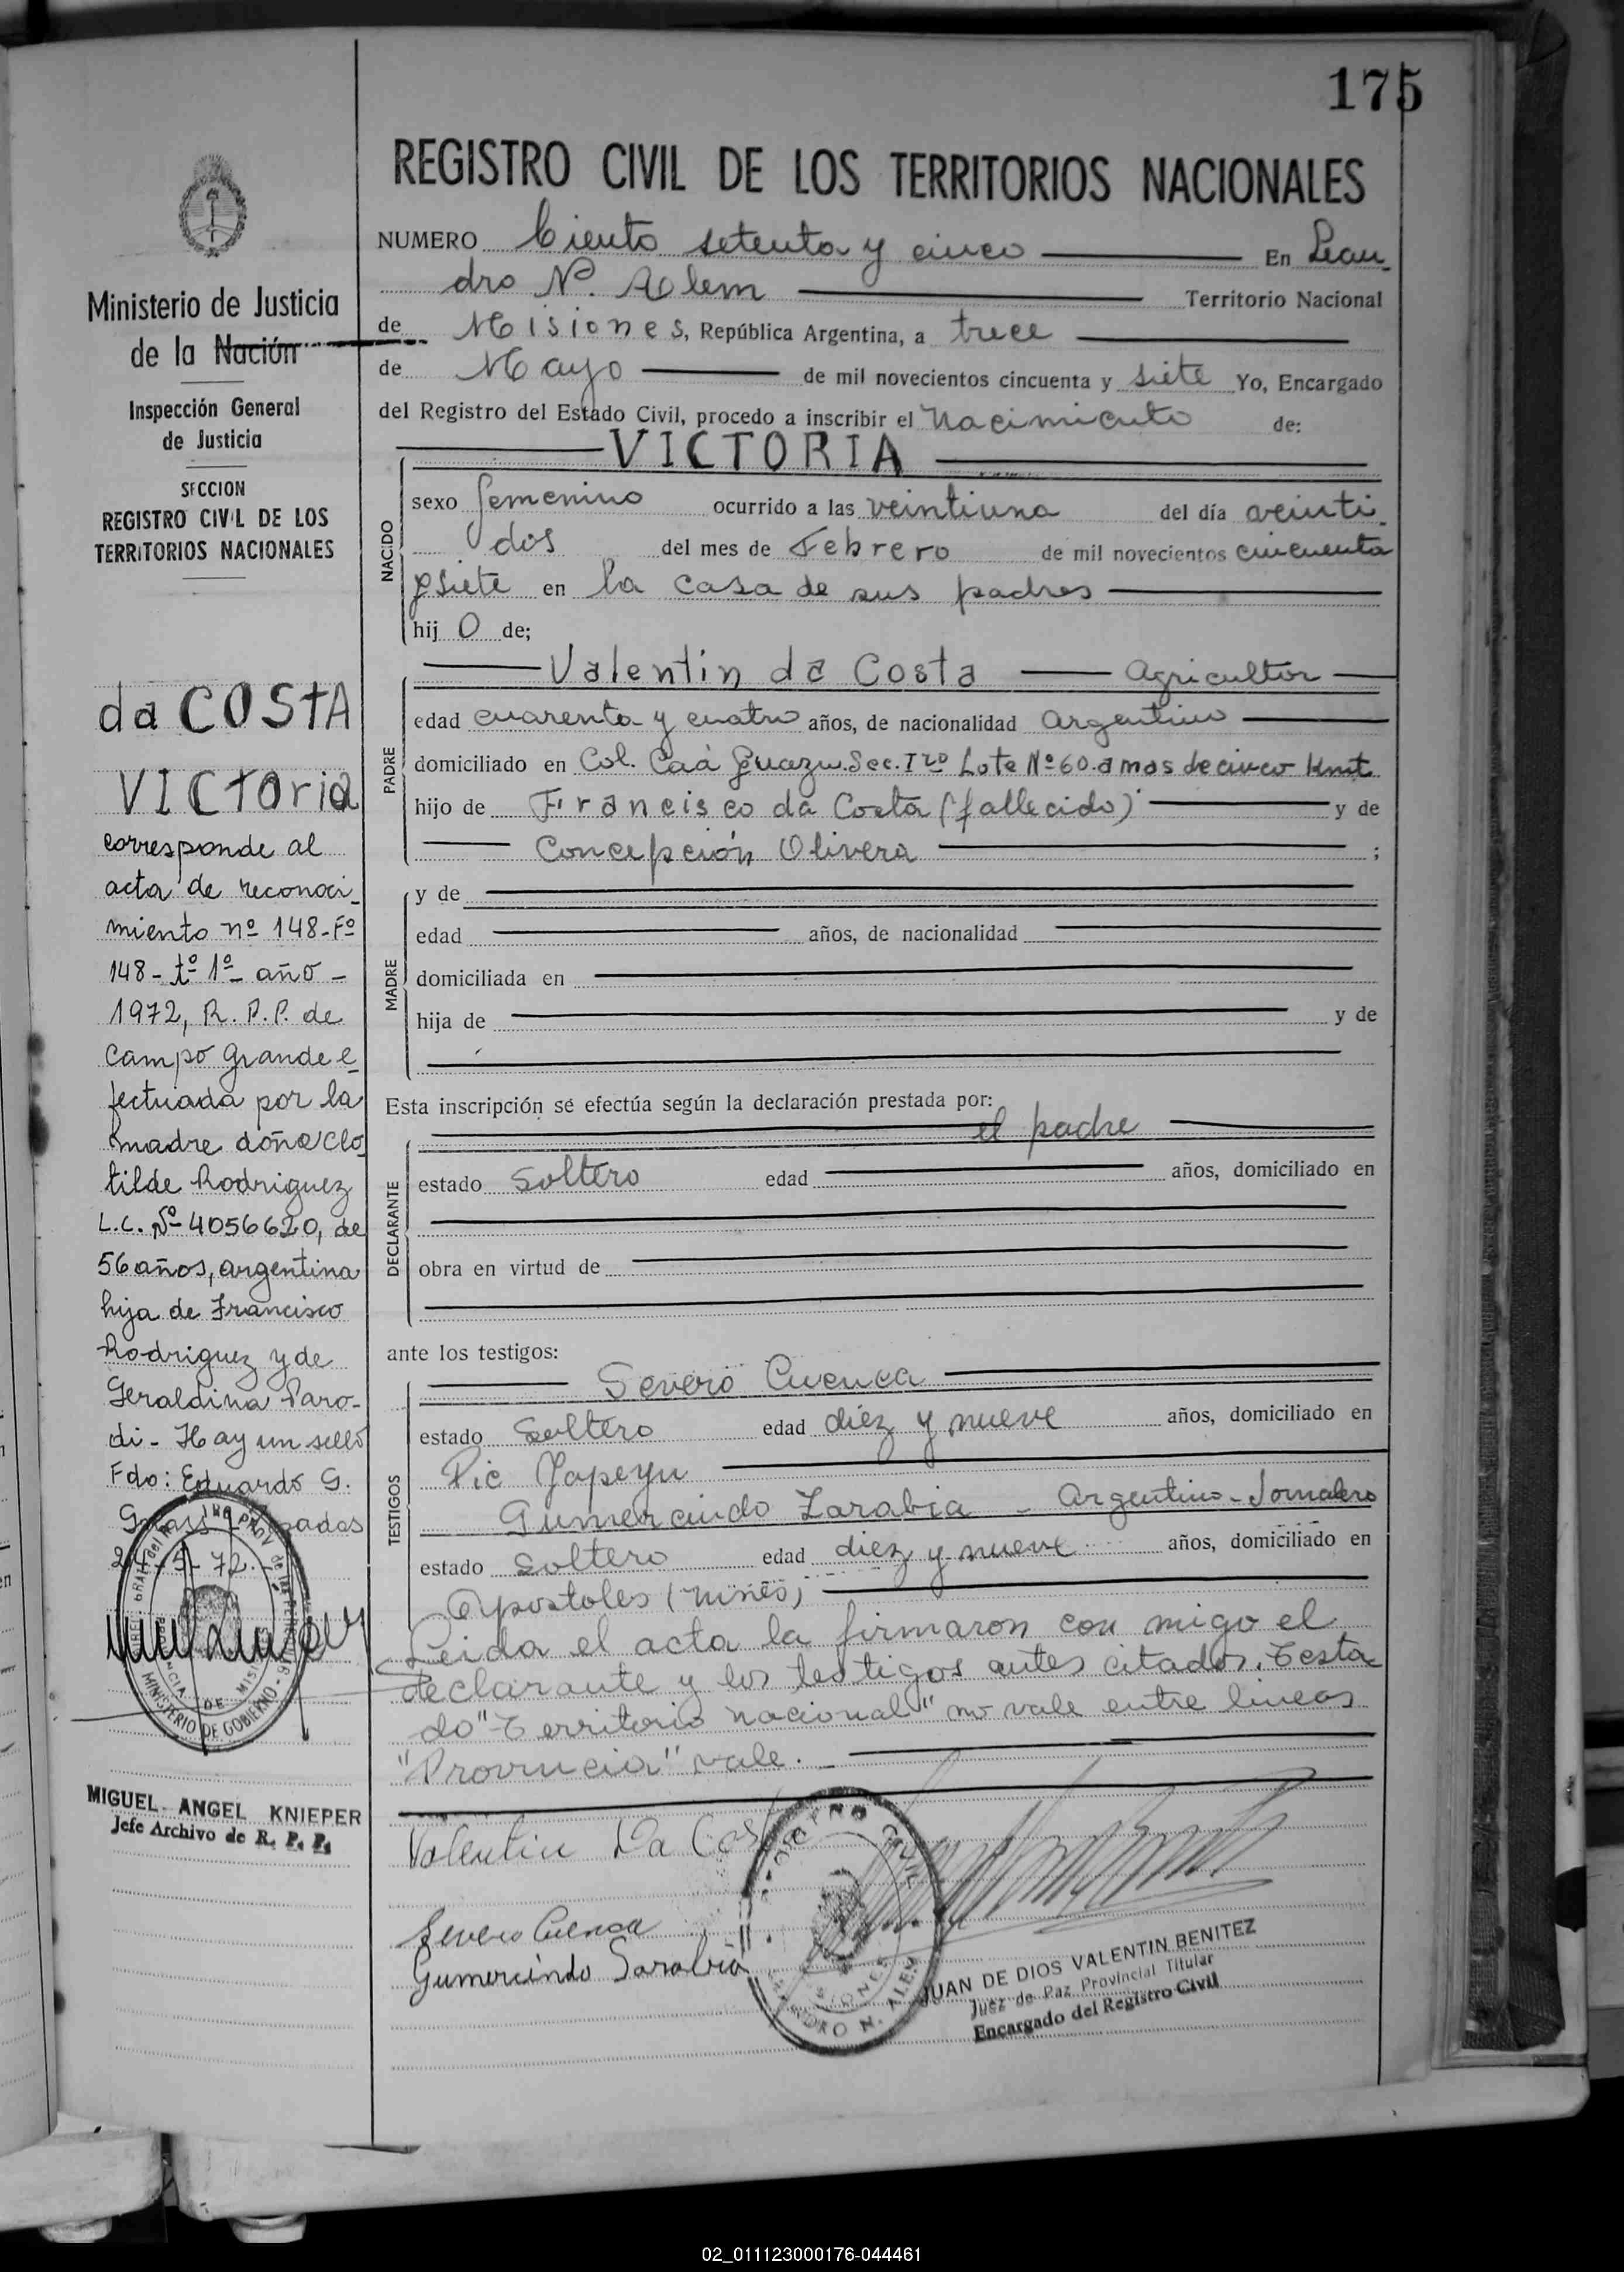 175
REGISTRO CIVIL DE LOS TERRITORIOS NACIONALES
NUMERO Ciento setenta y cinco En Lean_
dro N. Alem Territorio Nacional
de Misiones, República Argentina, a trece
de Mayo de mil novecientos cincuenta y siete Yo, Encargado
del Registro del Estado Civil, procedo a inscribir el Nacimiento de:
VICTORIA
NACIDO
sexo femenino ocurrido a las veintiuna del día veinti_
dos del mes de Febrero de mil novecientos cincuenta
y siete en la casa de sus padres
hij O de;
Valentin da Costa Agricultor
PADRE
edad cuarenta y cuatro años, de nacionalidad argentino
domiciliado en Col. Caá Guazu. Sec. Iro Lote Nº 60. a mas de cinco Kmt
hijo de Francisco da Costa (fallecido) y de
Concepción Olivera ;
MADRE
y de
edad años, de nacionalidad
domiciliada en
hija de y de
Esta inscripción se efectúa según la declaración prestada por:
el padre
DECLARANTE
estado Soltero edad años, domiciliado en
obra en virtud de
ante los testigos:
Severo Cuenca
TESTIGOS
estado Soltero edad diez y nueve años, domiciliado en
Pic Yapeyu
Gumercindo Zarabia - Argentino - Jornalero
estado Soltero edad diez y nueve años, domiciliado en
Apostoles
Leida el acta la firmaron con migo el
declarante y los testigos antes citados. Testa_
do "Territorio nacional" no vale entre lineas
"Provincia" vale.
Valentin Da Costa
Severo Cuenca
Gumercindo Sarabia
JUAN DE DIOS VALENTIN BENITEZ
Juez de Paz Provincial Titular
Encargado del Registro Civil
LEANDRO N. ALEM
Ministerio de Justicia
de la Nación
Inspección General
de Justicia
SECCION
REGISTRO CIVIL DE LOS
TERRITORIOS NACIONALES
da COSTA
VICToria
corresponde al
acta de reconoci_
miento nº 148-Fº
148-tº 1º año -
1972, R. P. P. de
Campo Grande e_
fectuada por la
madre doña Clo_
tilde Rodriguez
L.C. Nº 4056620, de
56 años, argentina
hija de Francisco
Rodriguez y de
Geraldina Paro-
di - Hay un sello
Fdo: Eduardo G.
24-5-72.
MINISTERIO DE GOBIERNO
MIGUEL ANGEL KNIEPER
Jefe Archivo de R. P. P.
02_011123000176-044461